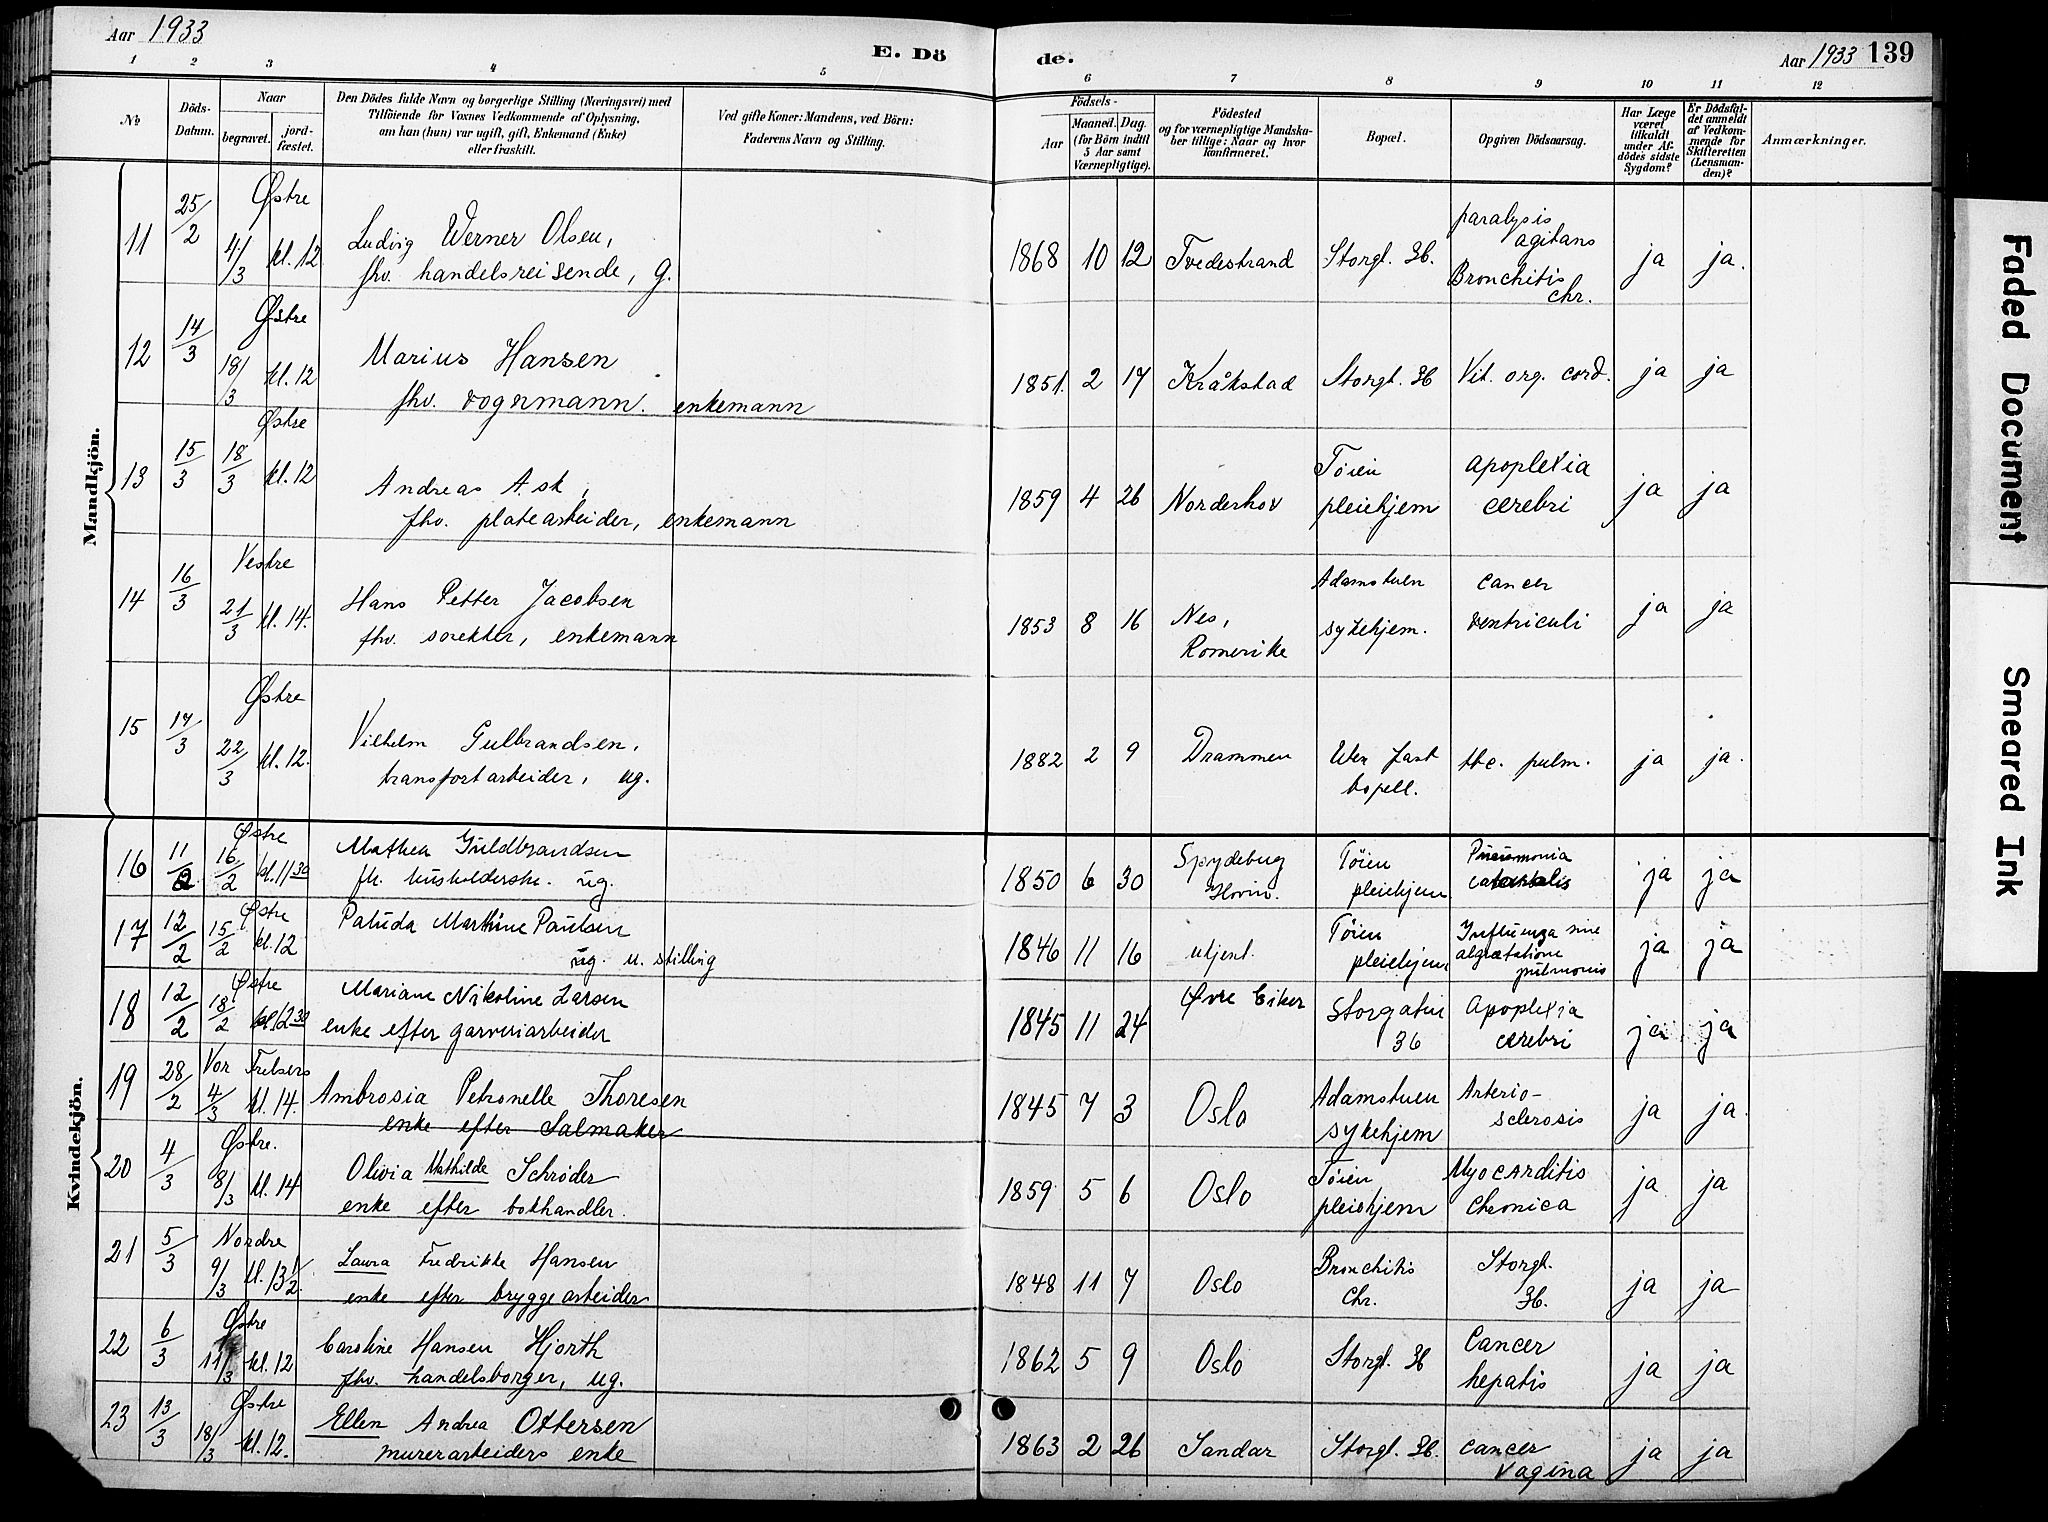 Aar 1933
E. Dö
de.
Aar 1933 139
1 2 3 4 5 6 7 8 9 10 11 12
No
Döds-
Datum.
Naar
begravet.
jord-
fæstet.
Den Dödes fulde Navn og borgerlige Stilling (Næringsvei) med
Tilföiende for Voxnes Vedkommende af Oplysning,
om han (hun) var ugift, gift, Enkemand (Enke)
eller fraskilt.
Ved gifte Koner: Mandens, ved Börn:
Faderens Navn og Stilling.
Födsels-
Aar
Maaned. Dag.
(for Börn indtil
5 Aar samt
Værnepligtige).
Födested
og for værnepligtige Mandska-
ber tillige: Naar og hvor
konfirmeret.
Bopæl.
Opgiven Dödsaarsag.
Har Læge
været
tilkaldt
under Af-
dödes sidste
Sygdom?
Er Dödsfal-
det anmeldt
af Vedkom-
mende for
Skifteretten
(Lensman-
den)?
Anmærkninger.
Mandkjön.
11 25/2 Østre
4/3 kl. 12
Ludvig Werner Olsen,
fhv. handelsreisende, g.
1868 10 12 Tvedestrand Storgt. 36.
paralysis
agitans
Bronchitis
chr.
ja ja.
12 14/3 Østre
18/3 kl. 12
Marius Hansen
fhv. vognmann. enkemann
1851. 2 17 Kråkstad Storgt. 36 Vit. org. cord. ja ja
13 15/3 Østre
18/3 kl. 12
Andreas Ask,
fhv. platearbeider, enkemann
1859 4 26 Norderhov
Tøien
pleiehjem
apoplexia
cerebri
ja ja
14 16/3 Vestre
21/3 kl. 14.
Hans Petter Jacobsen
fhv. snekker, enkemann
1853 8 16
Nes,
Romerike
Adamstuen
sykehjem.
cancer
ventriculi
ja ja
15 17/3 Østre
22/3 kl. 12.
Vilhelm Gulbrandsen,
transportarbeider, ug.
1882 2 9 Drammen
Uten fast
bopell.
tbc. pulm. ja ja.
Kvindekjön.
16 11/2 Østre
16/2 kl. 11 30
Mathea Guldbrandsen
fh. husholderske. ug.
1850 6 30
Spydeberg
Hovin.
Tøien
pleiehjem
Pneumonia
catarrhalis
ja ja
17 12/2 Østre
15/2 kl. 12
Paluda Marthine Paulsen
ug. u. stilling
1846 11 16 ukjent.
Tøien
pleiehjem
Influenza sine
pulmonis
ja ja
18 12/2 Østre
18/2 kl 12 30
Mariane Nikoline Larsen
enke efter garveriarbeider
1845 11 24 Øvre Eiker
Storgaten
36
Apoplexia
cerebri
ja ja
19 28/2 Vor Frelsers
4/3 kl. 14.
Ambrosia Petronelle Thoresen
enke efter Salmaker
1845 7 3 Oslo
Adamstuen
sykehjem
Arterio-
sclerosis
ja ja
20 4/3 Østre.
8/3 kl. 14
Olivia Mathilde Schrøder
enke efter bokhandler.
1859 5 6 Oslo
Tøien
pleiehjem
Myocarditis
Chronica
ja ja
21 5/3 Nordre
9/3 kl. 13 1/2.
Laura Fredrikke Hansen
enke efter bryggearbeider
1848 11 7 Oslo
Bronchitis
Chr.
Storgt.
36.
ja ja
22 6/3 Østre
11/3 kl. 12
Caroline Hansen Hjorth
fhv. handelsborger, ug.
1862 5 9 Oslo Storgt. 36
Cancer
hepatis
ja ja
23 13/3 Østre
18/3 kl. 12.
Ellen Andrea Ottersen
murerarbeiders enke
1863 2 26 Sandar Storgt. 36.
cancer
vagina
ja ja
Faded Document
Smeared Ink